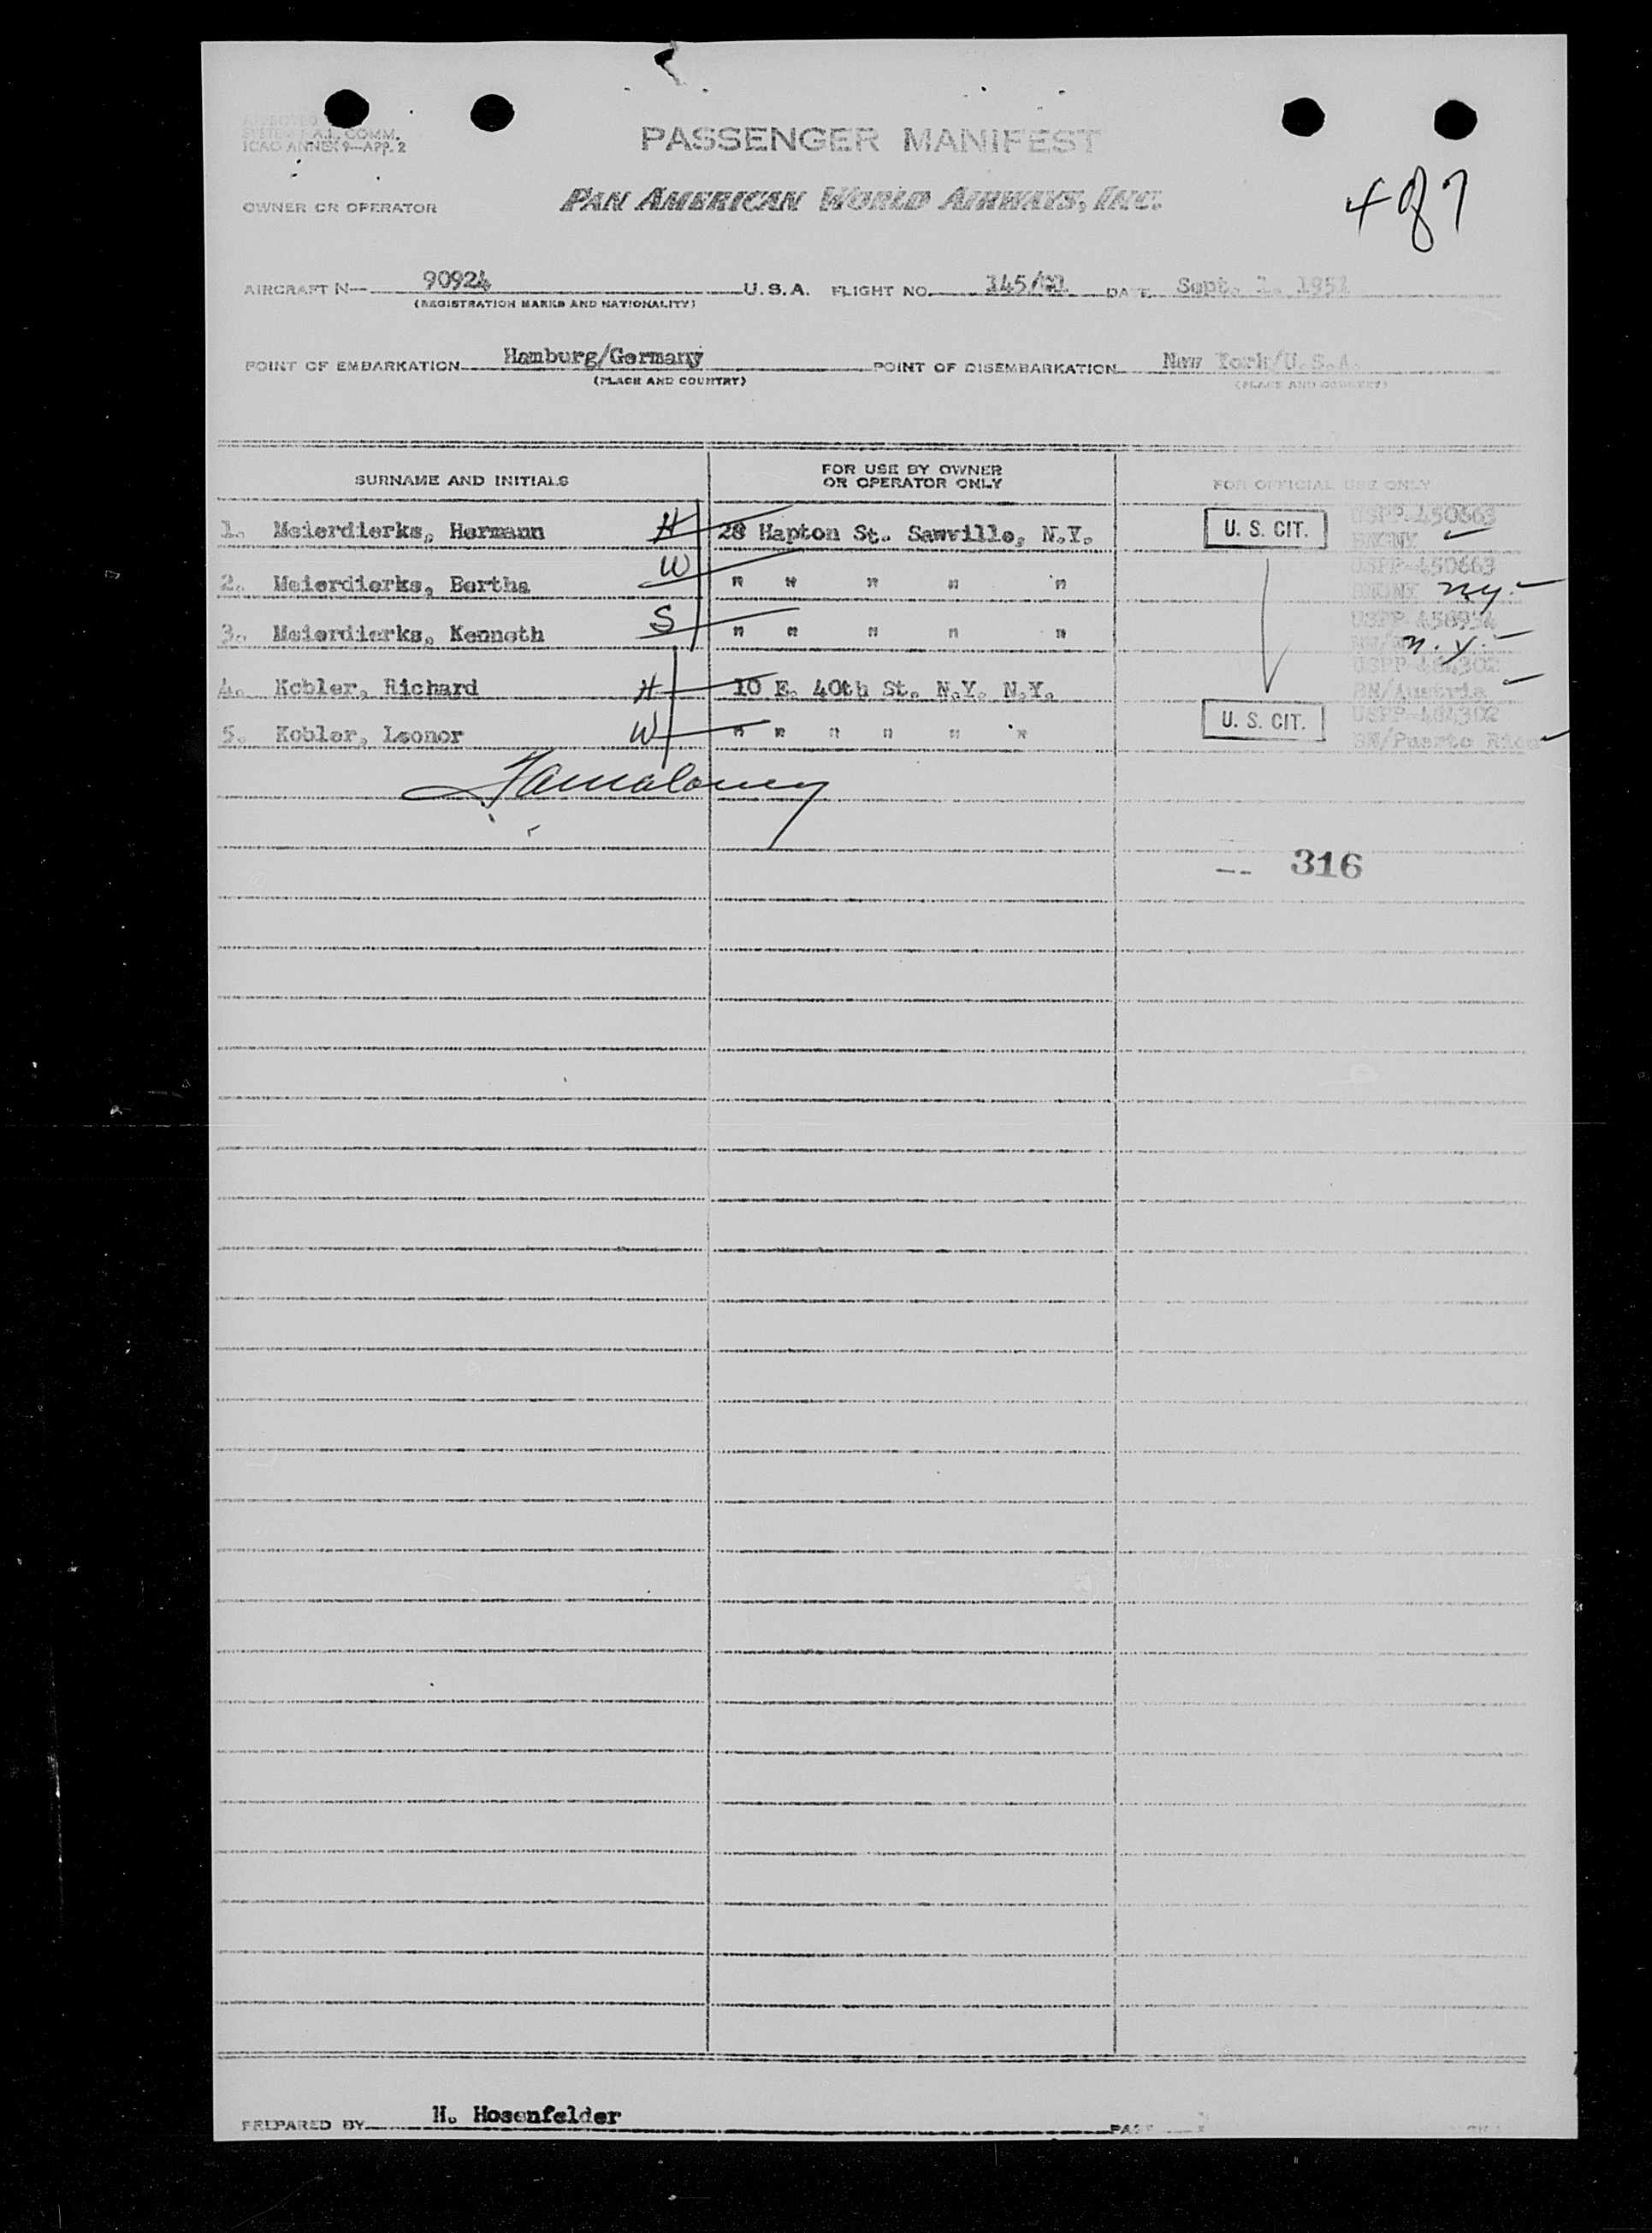 APPROVED
SYSTEM F.A.L. COMM.
ICAO ANNEX 9—APP. 2
PASSENGER MANIFEST
OWNER OR OPERATOR PAN AMERICAN WORLD AIRWAYS, INC.
4 of 7
AIRCRAFT N— 90924 U.S.A. FLIGHT NO. 145/ DATE Sept. 1. 1951
(REGISTRATION MARKS AND NATIONALITY)
POINT OF EMBARKATION Hamburg/Germany POINT OF DISEMBARKATION New York/U.S.A.
(PLACE AND COUNTRY) (PLACE AND COUNTRY)
SURNAME AND INITIALS FOR USE BY OWNER OR OPERATOR ONLY FOR OFFICIAL USE ONLY
1. Meierdierks, Hermann H 28 Hapton St. Sawville, N.Y. U. S. CIT. USPP-450663
2. Meierdierks, Bertha W " " " " " USPP-450663 BNONY N.Y.
3. Meierdierks, Kenneth S " " " " " USPP-450934 N.Y.
4. Kobler, Richard H 10 E. 40th St. N.Y. N.Y. USPP-484302 BN/Austria
5. Kobler, Leonor W " " " " " " U. S. CIT. USPP-484302 BN/Puerto Rico
-- 316
PREPARED BY H. Hosenfelder PAGE